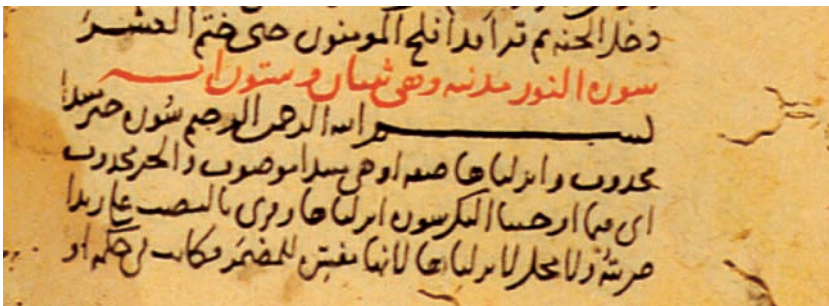 دخل الجنة ثم قرأ قد أفلح المومنون حتى ختم العشر
سورة النور مدنية وهي ثنتان وستون اية
بسم الله الرحمن الرحيم سورة خبر مبتدا
محذوف وانزلناها صفة او هي مبتدا موصوف والخبر محذوف
اي فيما اوحينا اليك سورة انزلناها وقرئ بالنصب على زيدا
ضربته ولا محل لانزلناها لانها مفسرة للمضمر فكانت في حكمه او